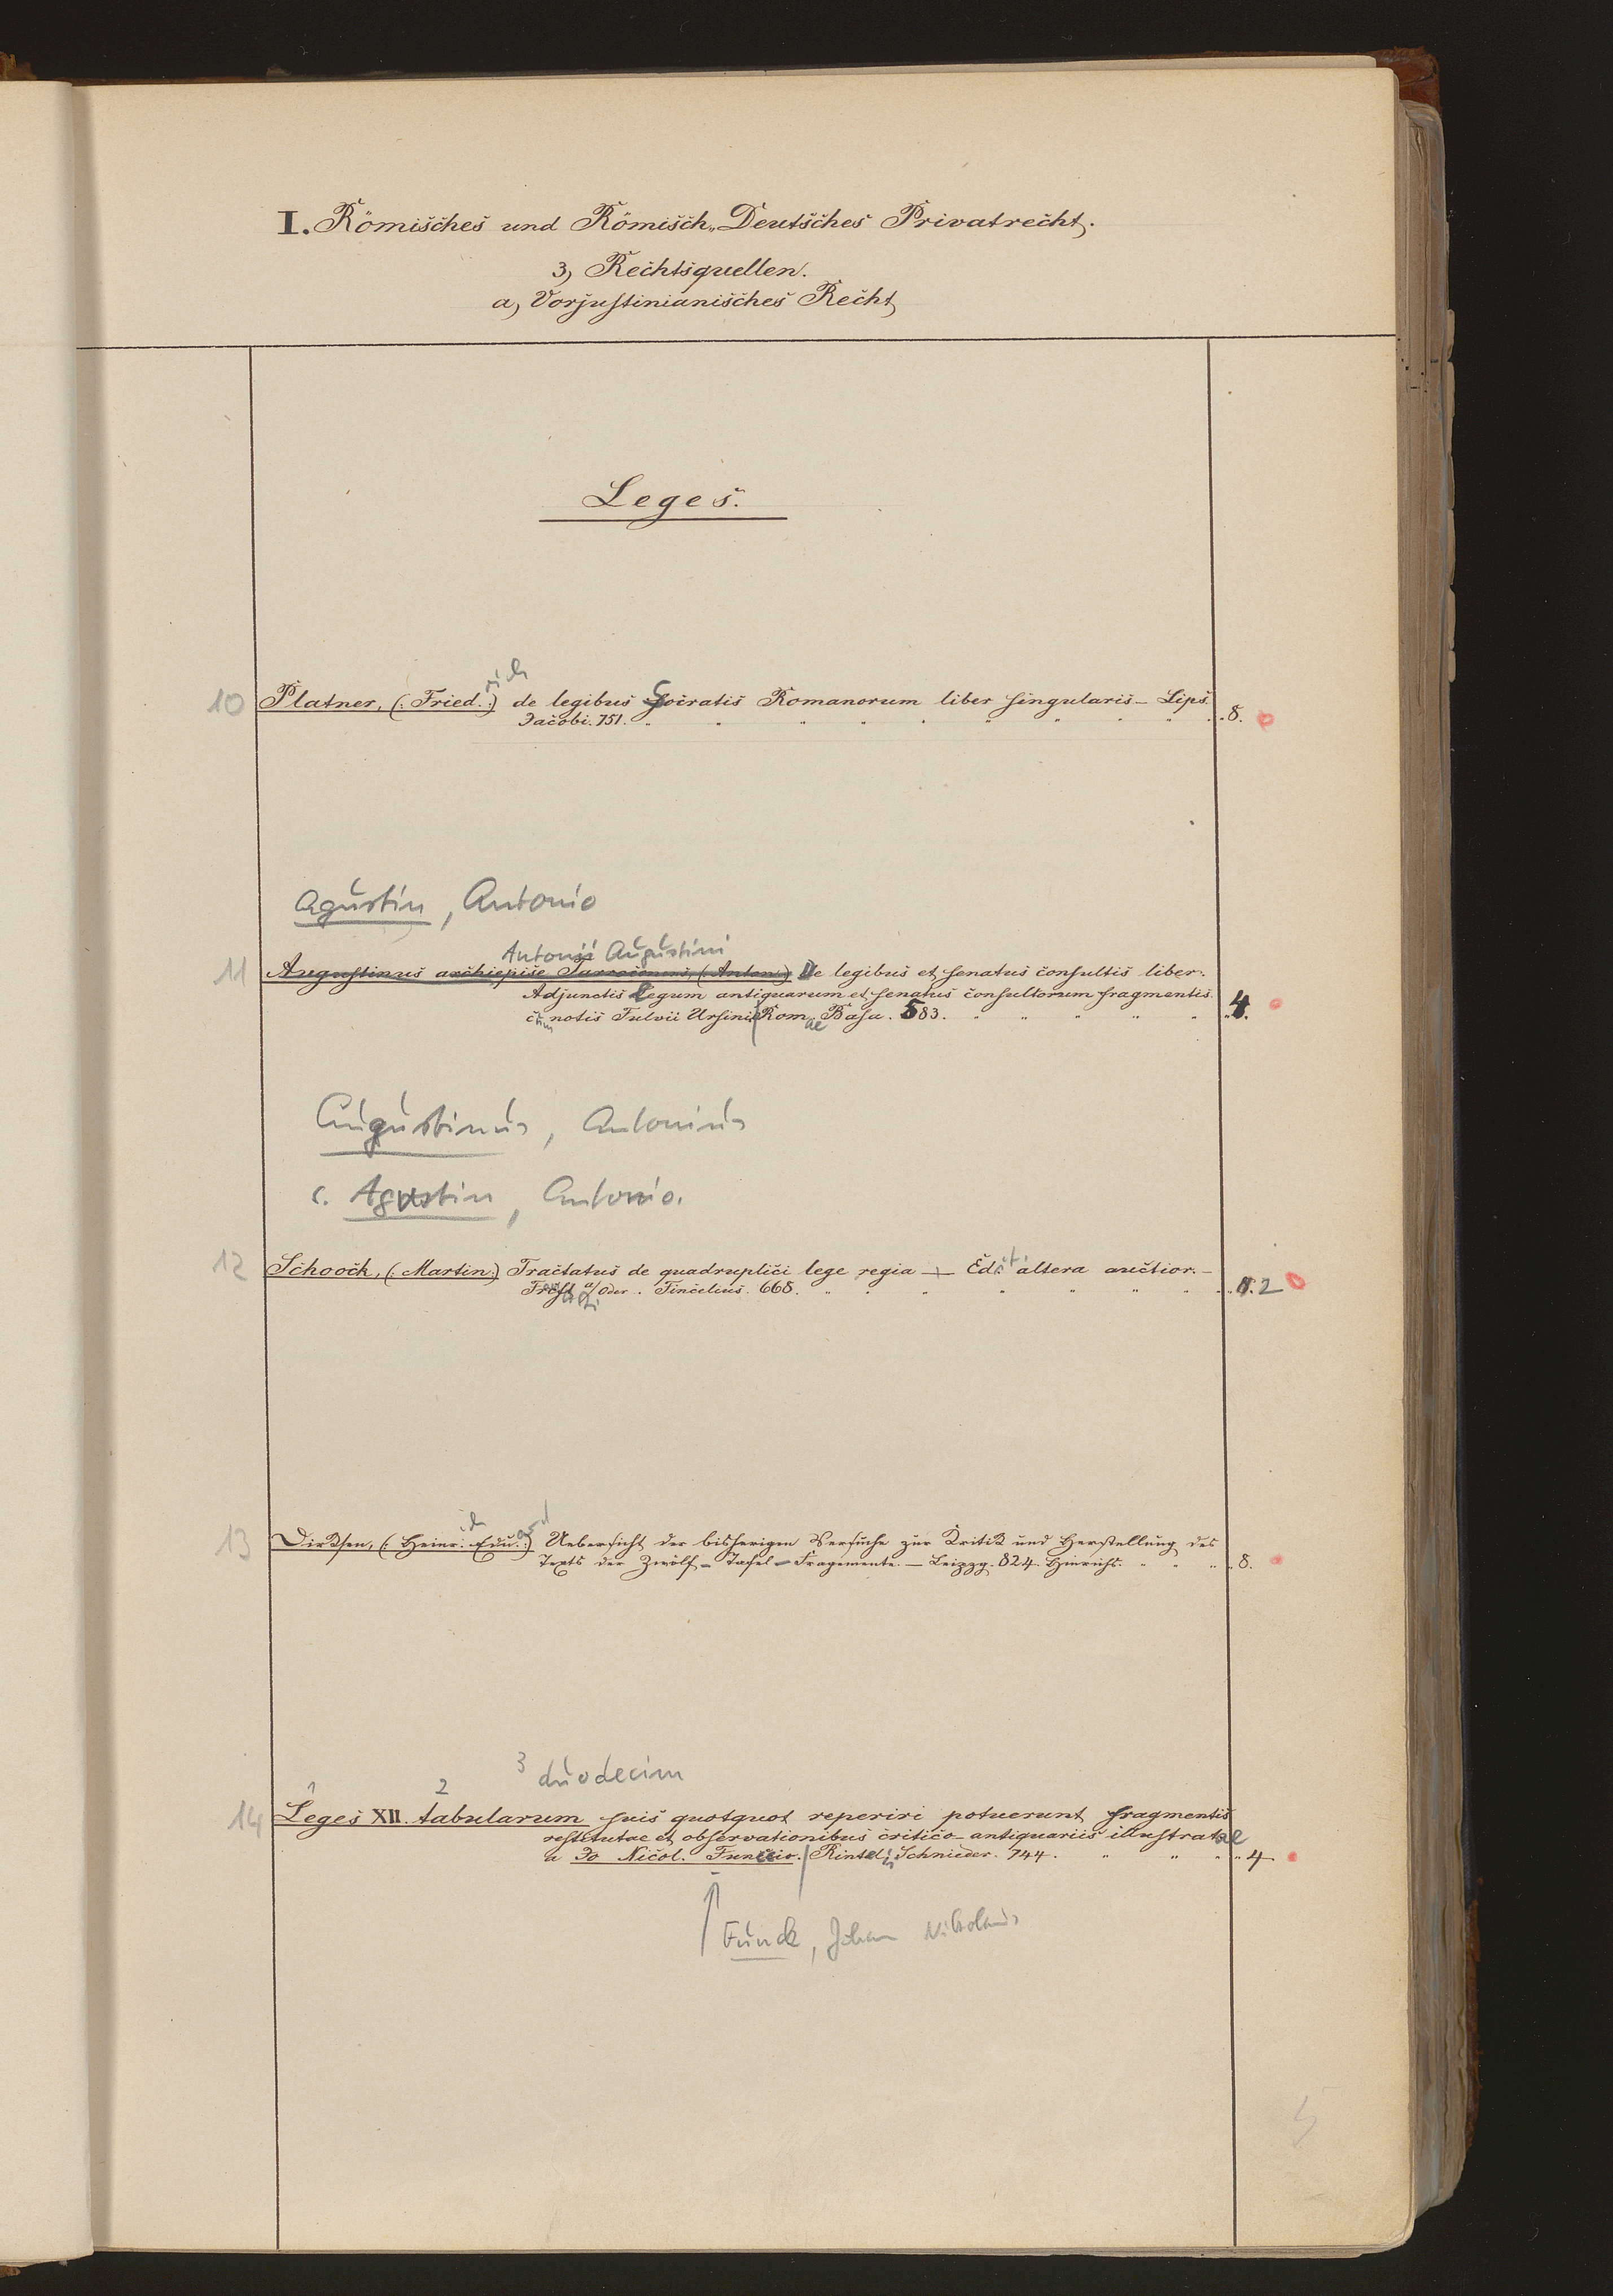 I. Römisches und Römisch-Deutsches Privatrecht.
3) Rechtsquellen.
a) Vorjustinianisches Recht
Leges.
rich
10 Platner, (: Fried. :) de legibus Socratis Romanorum liber singularis — Lips.
Jacobi. 751. " " " " " " " " " 8.
Agustin, Antonio
Antonii Augustini
11 Augustinus archiepisc (: Anton :) De legibus et senatus consultis liber.
Adjunctis legum antiquarum et senatus consultorum fragmentis.
cum notis Fulvii Ursini Romae Basa. 583. " " " " " 4.
Augustinus, Antonius
s. Agustin, Antonio.
12 Schoock, (: Martin :) Tractatus de quadruplici lege regia — Edit. altera auctior. —
a/Oder. Tincelius. 668. " " " " " " " 2
13 Dirksen, (: Heinr. Edu. :) Uebersicht der bisherigen Versuche zur Kritik und Herstellung des
Texts der Zwölf-Tafel-Fragmente. — Leipzg. 824. Hinrichs. " " " 8.
3 duodecim
1 2
14 Leges XII. tabularum suis quotquot reperiri potuerunt fragmentis
restitutae et observationibus critico-antiquariis illustratae
a Jo Nicol. Funccio. Rinteln Schnieder. 744. " " " 4
Funck, Johann Nikolaus
5